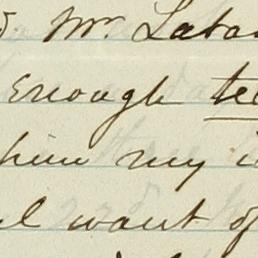 Mr. Laba
Enough te
him my i
want of